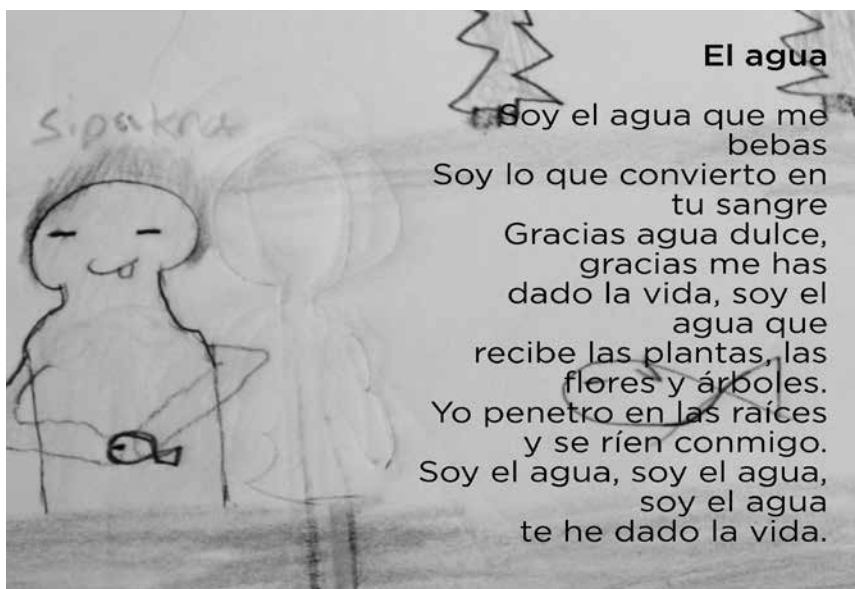 El agua
sipakna
Soy el agua que me
bebas
Soy lo que convierto en
tu sangre
Gracias agua dulce,
gracias me has
dado la vida, soy el
agua que
recibe las plantas, las
flores y árboles.
Yo penetro en las raíces
y se ríen conmigo.
Soy el agua, soy el agua,
soy el agua
te he dado la vida.